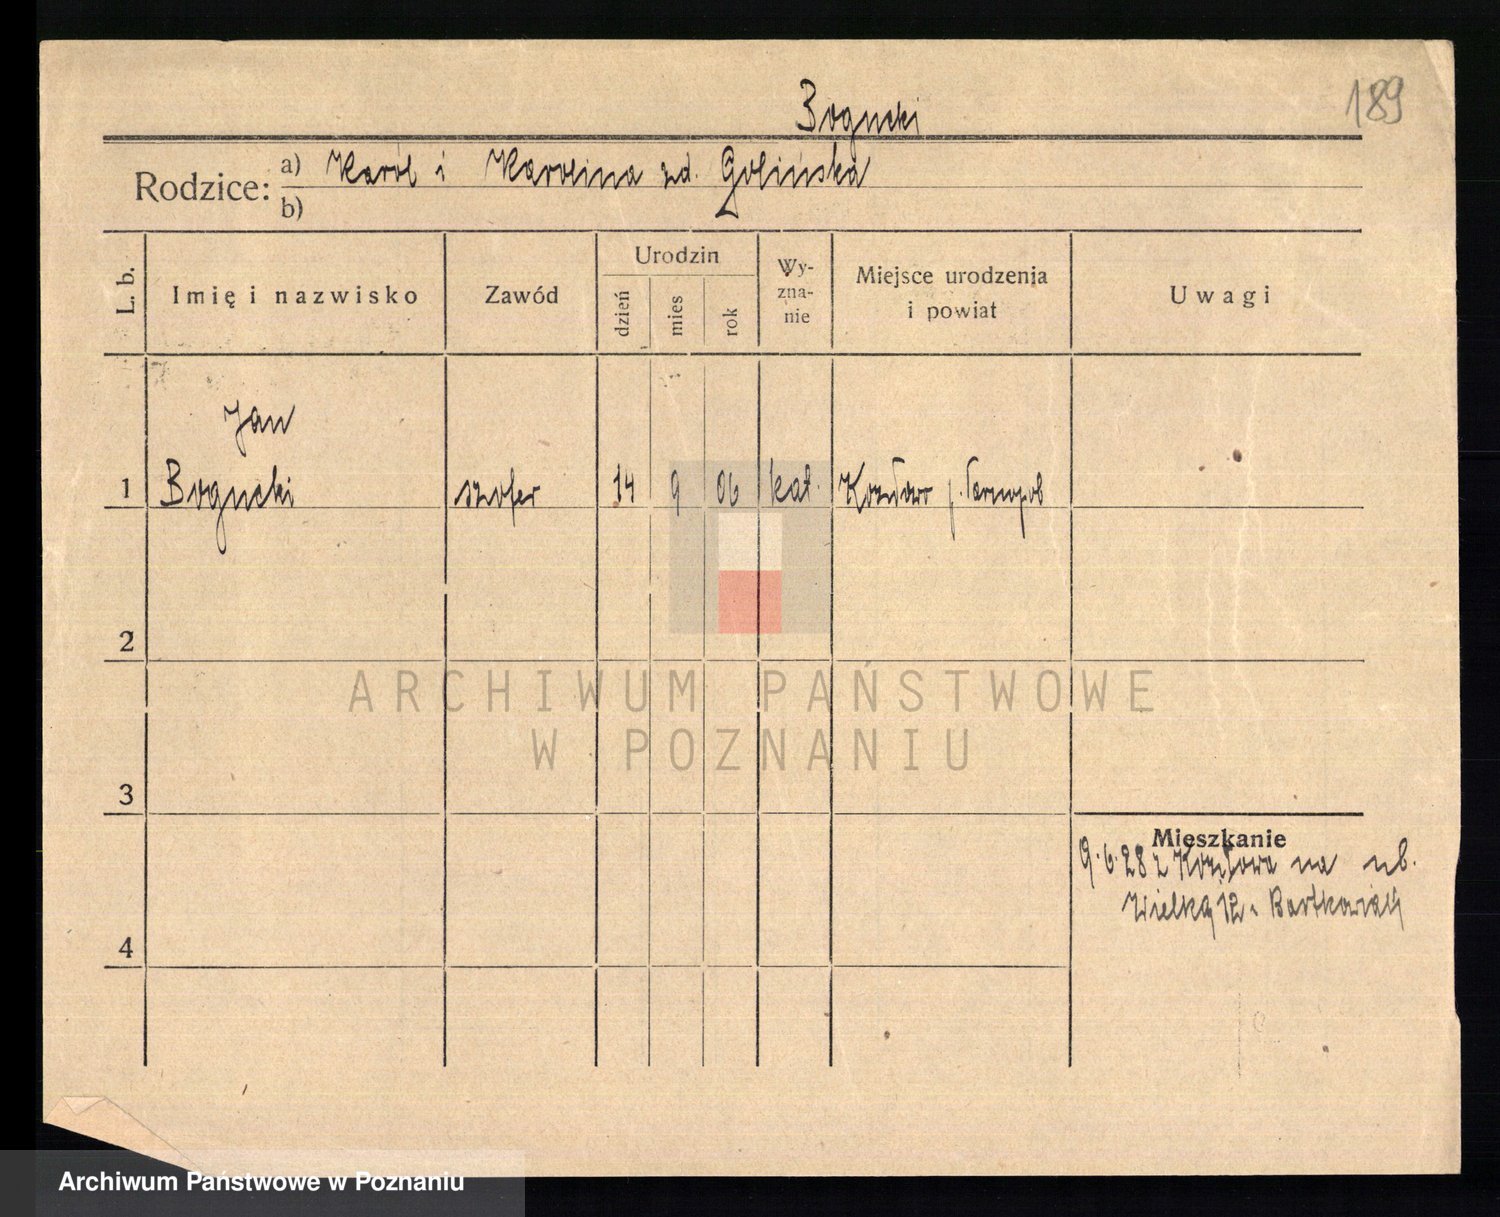 Bogucki
189
Rodzice: a) Karol i Karolina zd. Golińska
b)
L. b.
Imię i nazwisko
Zawód
Urodzin
dzień
mies
rok
Wy-
zna-
nie
Miejsce urodzenia
i powiat
Uwagi
Jan
1 Bogucki szofer 14 9 06 kat. p. Tarnopol
2
3
4
Mieszkanie
9.6.28 z Kozłowa na ul.
Wielką 12 Bartkowiak
ARCHIWUM PAŃSTWOWE
W POZNANIU
Archiwum Państwowe w Poznaniu